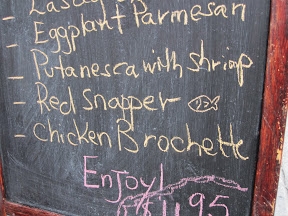 - Eggplant Parmesan
- Putanesca with shrimp
- Red Snapper
- Chicken Brochette
Enjoy!